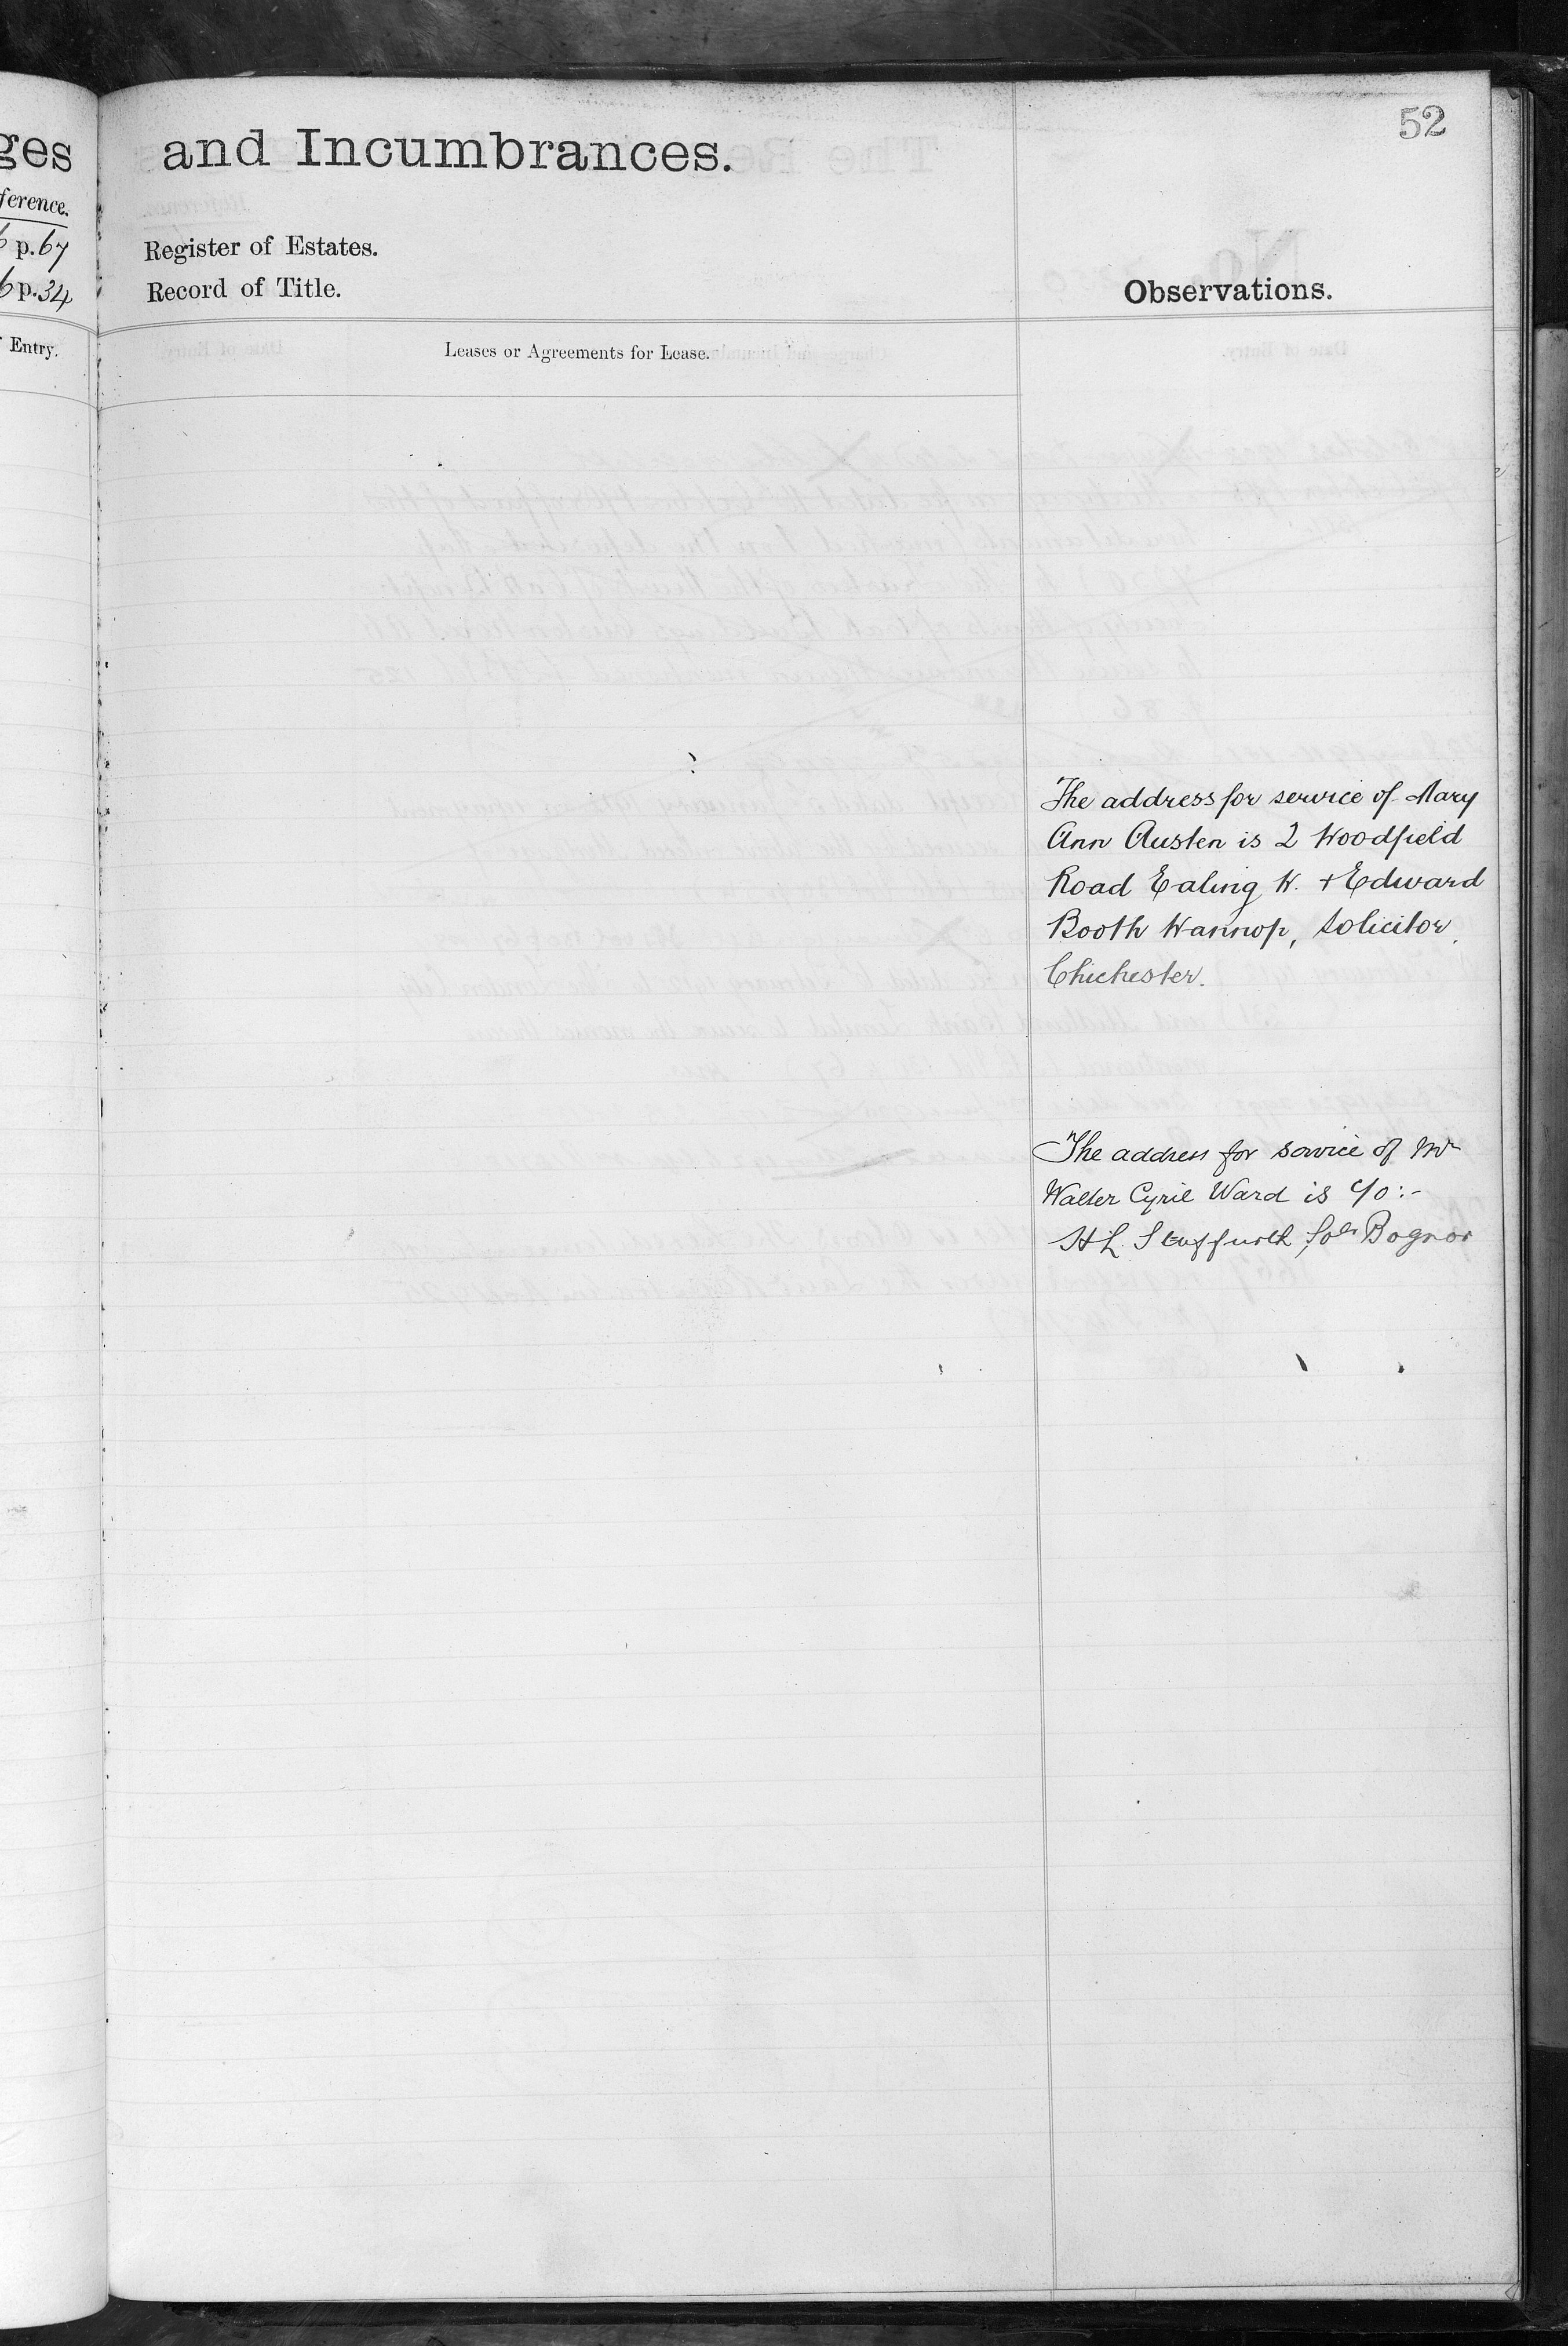 52
ges
and Incumbrances.
ference.
p. 67
p. 34
Register of Estates.
Record of Title.
Observations.
Entry.
Leases or Agreements for Lease.
The address for service of Mary
Ann Austen is 2 Woodfield
Road Ealing W. + Edward
Booth Wannop, Solicitor,
Chichester.
The address for service of Mr
Walter Cyril Ward is c/o:-
H L. Staffurth, Solr Bognor